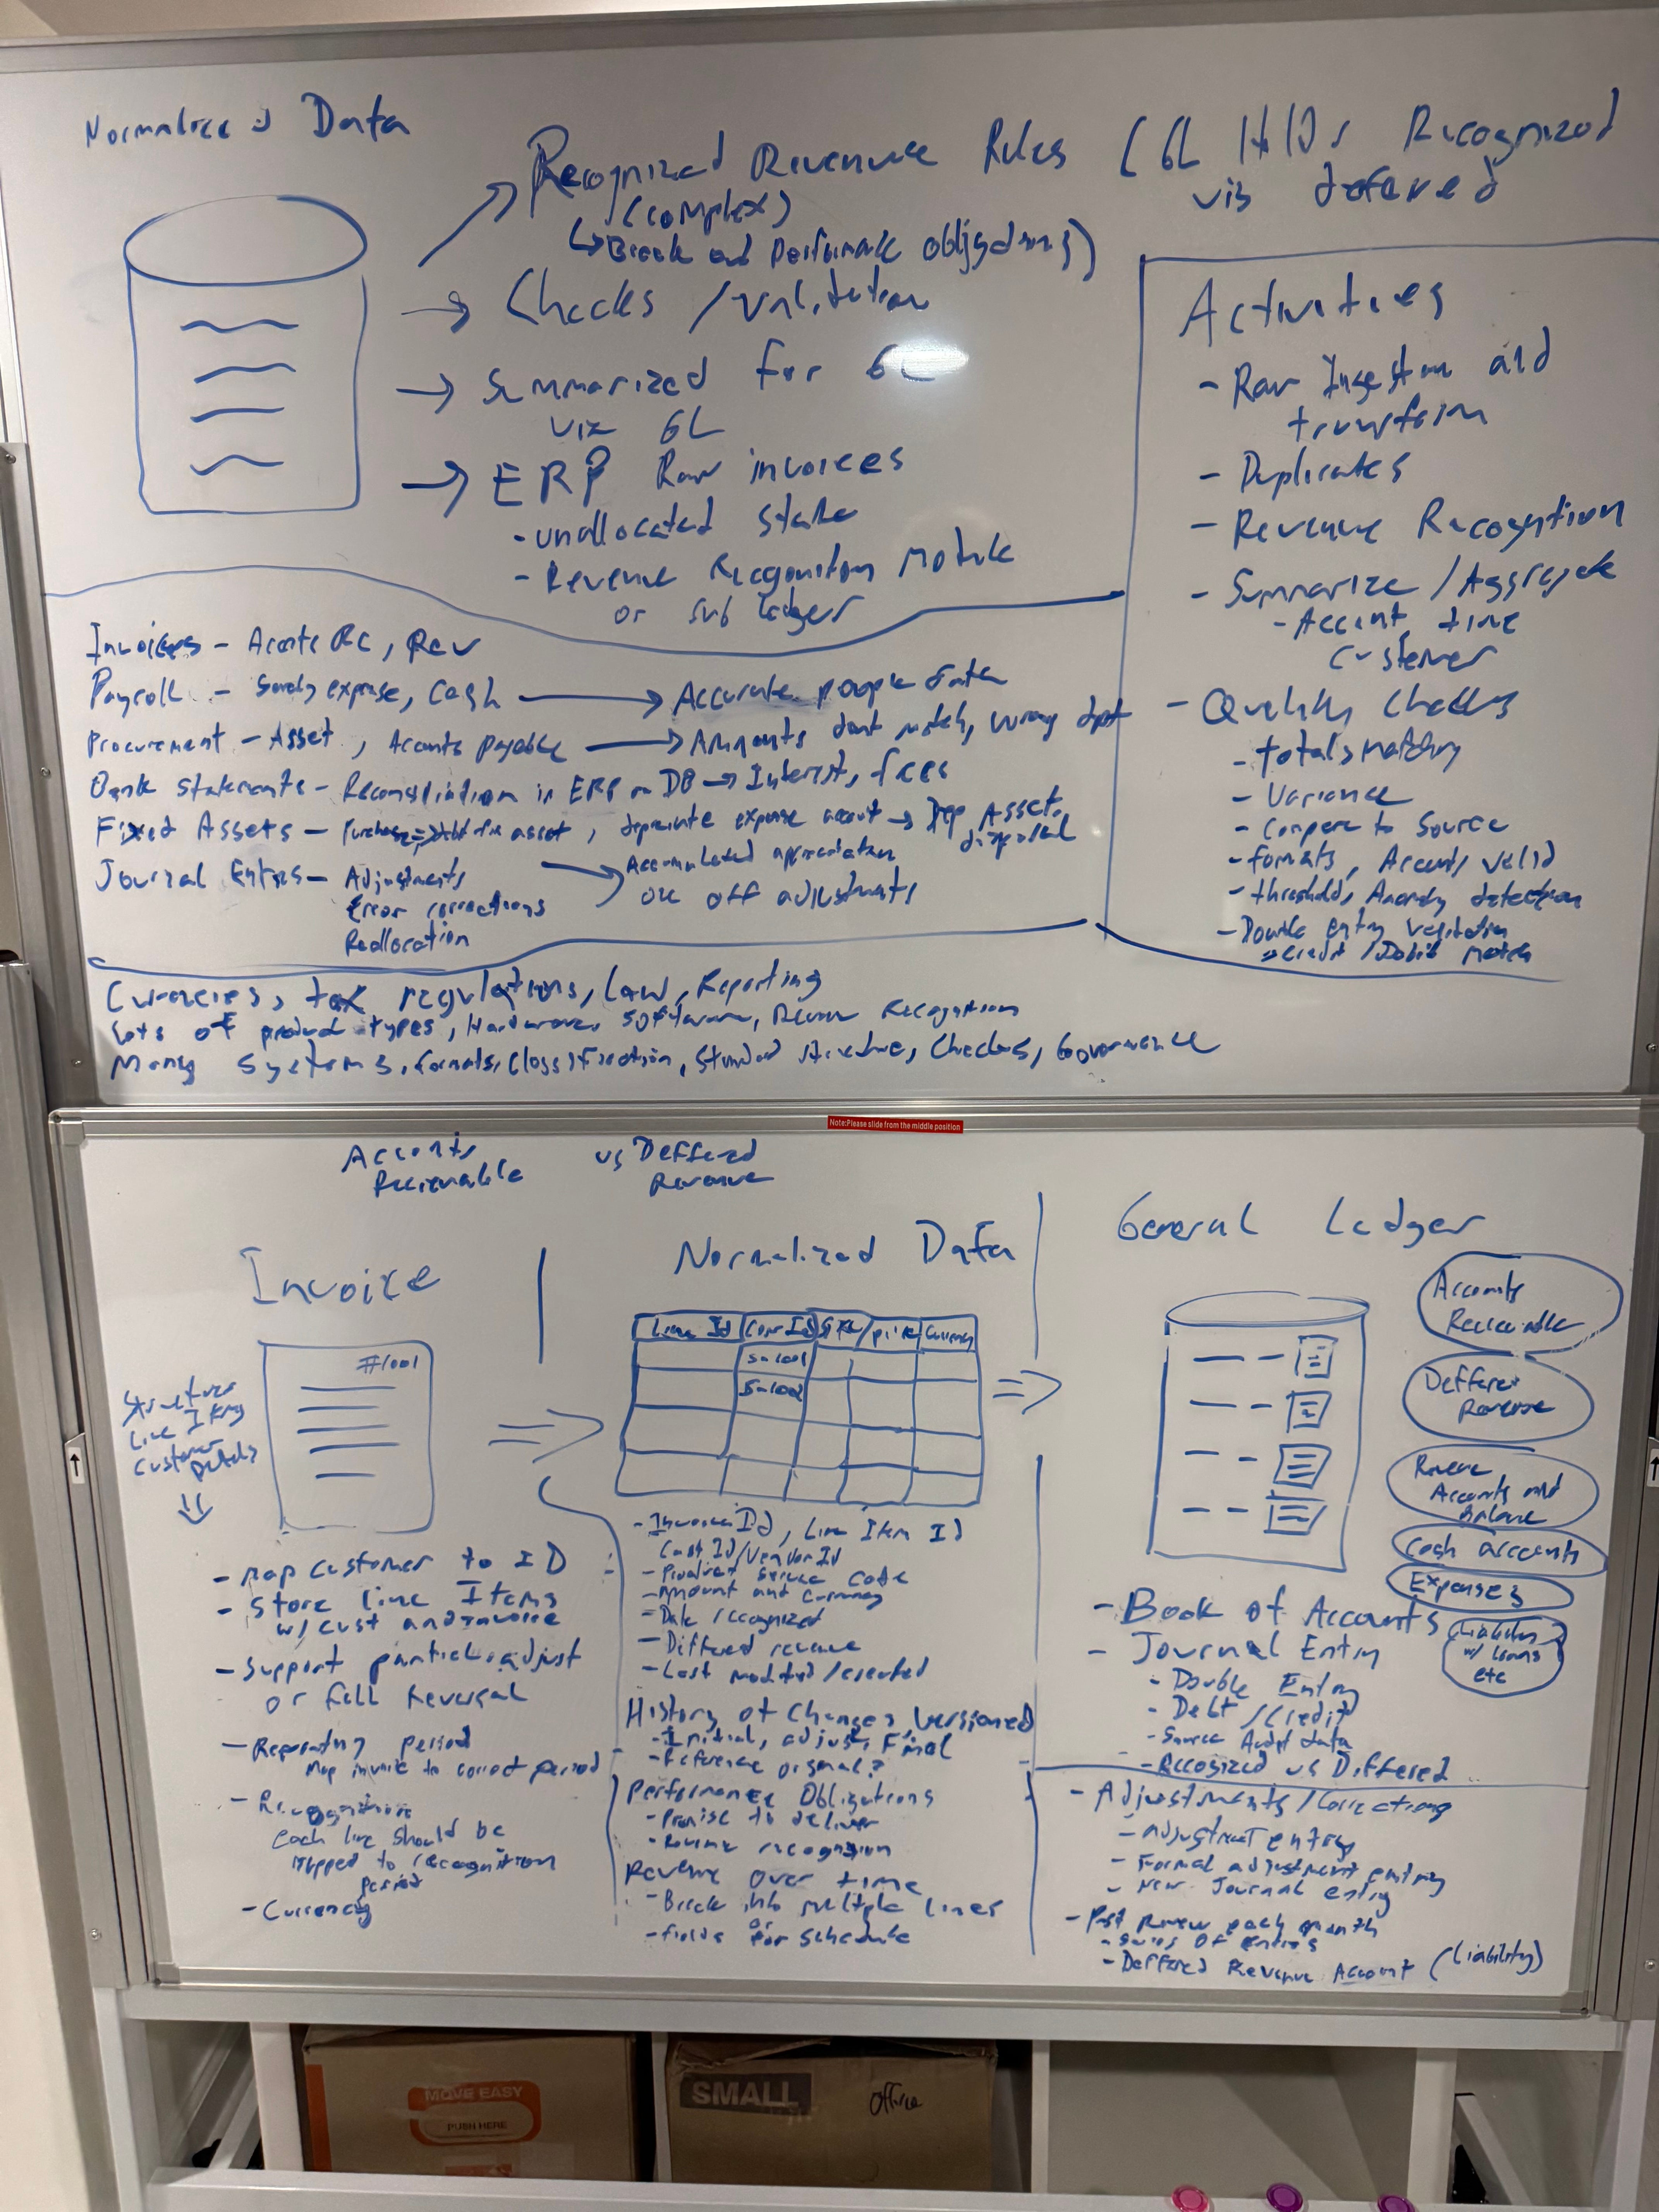 Normalized Data
Recognized Revenue Rules (GL
Recognized
vis defered
(complex)
Break and
Checks /
Summarized for GL
viz GL
ERP Raw invoices
- unallocated state
- Revenue Recognition Module
or sub ledger
Activities
- Raw Ingestion and
transform
- Duplicates
- Revenue Recognition
- Summarize / Aggregate
- Account, time
customer
- Quality Checks
- totals matching
- Variance
- Compare to Source
- formats, Accounts valid
- threshold, Anomaly detection
- Double entry validation
Credit / Debit Match
Invoices - Rev
Payroll - expense, cash → Accurate people data
Procurement - Asset, Accounts payable → Amounts dont match, wrong dpt
Bank Statements - Reconciliation in ERP or DB → Interest, fees
Fixed Assets - asset, expense account → Asset
disposal
Accumulated
Journal Entries - Adjustments
one off adjustments
Error corrections
Reallocation
Currencies, tax regulations, Law, Reporting
Lots of product types, Hardware, Software, Revenue Recognition
Many systems, formats, Classification, Standard structure, Checks, Governance
Note:Please slide from the middle position
Accounts
Recievable
vs Deffered
Revenue
Invoice
#1001
Structures
Line Items
Customer
Details
- Map customer to ID
- Store line Items
w/ cust and invoice
- Support partial adjust
or full reversal
- Reporting period
Map invoice to correct period
- Recognition
Each line should be
mapped to recognition
period
- Currency
Normalized Data
Line Id
Currency
S-1001
S-1002
- Invoice Id, Line Item Id
Cust Id/Vendor Id
- Product service code
- Amount and Currency
- Date recognized
- Differed revenue
- Last modified / created
History of Changes, Versioned
- Initial, adjust, Final
- Reference orginal?
Performance Obligations
- Promise to deliver
- Revenue recognition
Revenue over time
- Break into multiple lines
or
- fields for schedule
General Ledger
Accounts
Recievable
Deffered
Revenue
Accounts and
Balance
Cash accounts
Expenses
Liabilities
w/ Loans
etc
- Book of Accounts
- Journal Entry
- Double Entry
- Debt / Credit
- Source Audit data
- Recognized vs Differed
- Adjustments / Corrections
- adjustment entry
- Formal adjustment entry
- New Journal entry
- Post Revenue each month
- series of entries
- Deffered Revenue Account (Liability)
MOVE EASY
PUSH HERE
SMALL
Office